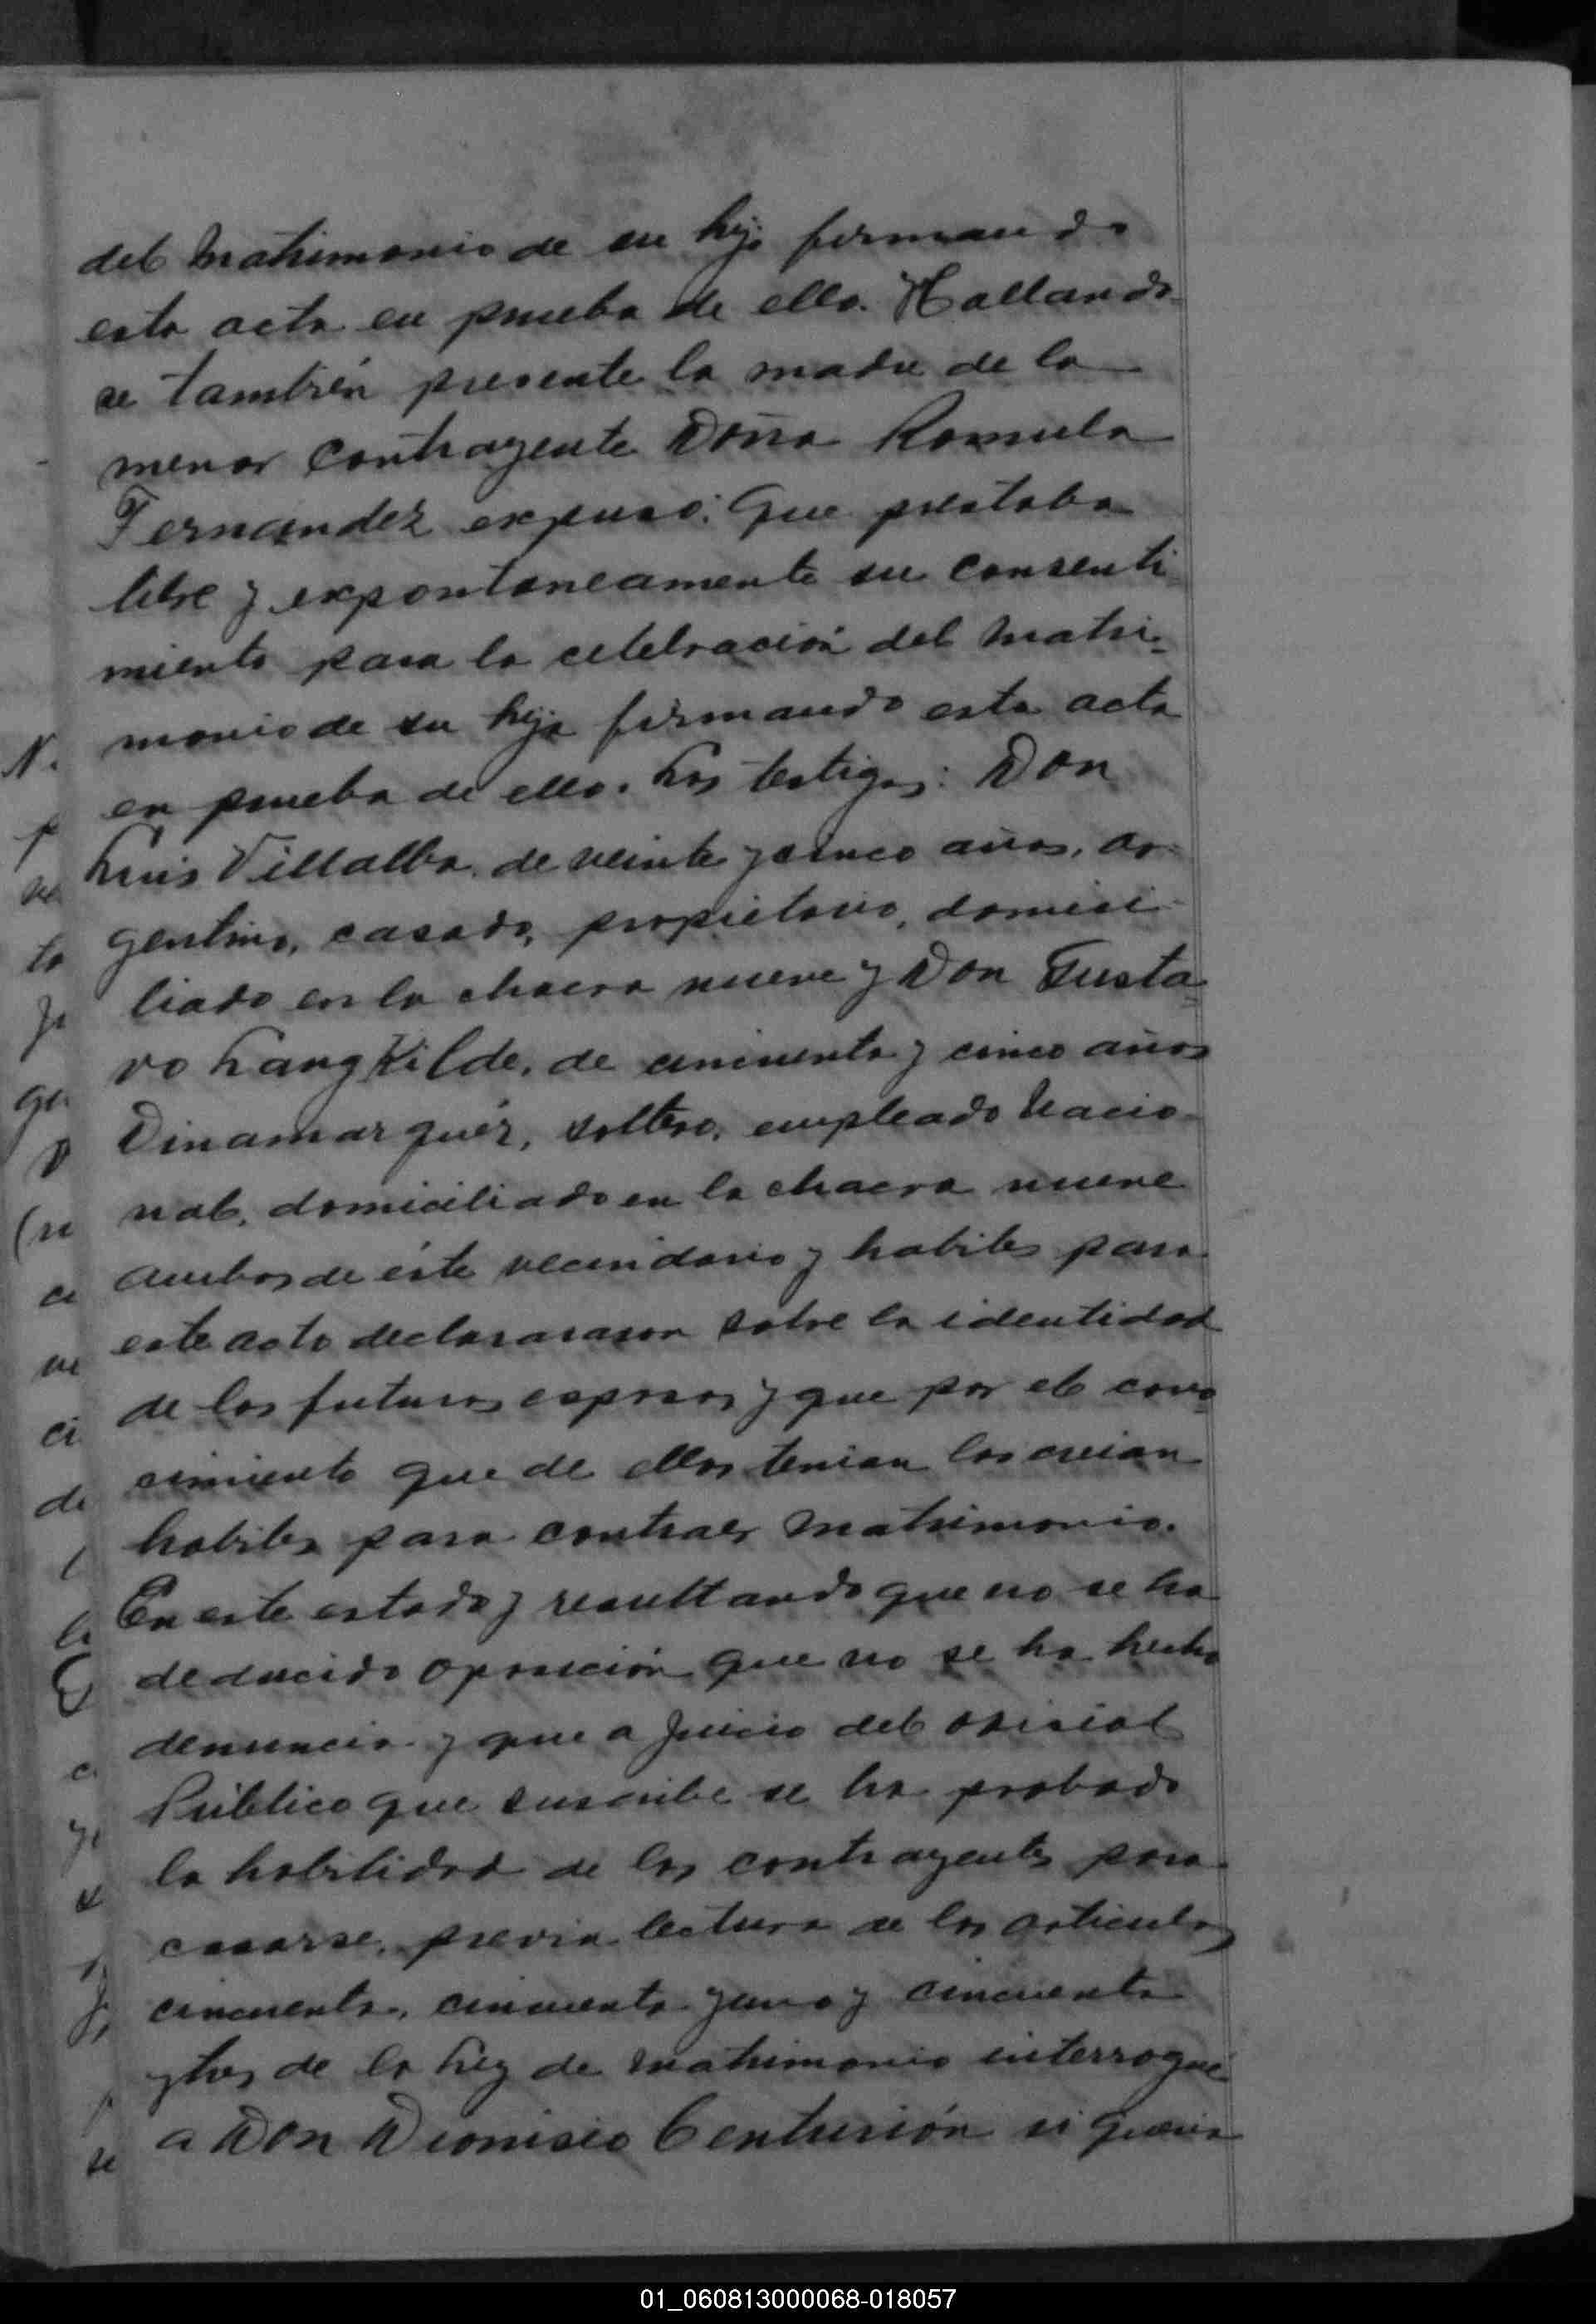 del Matrimonio de su hijo firmando
esta acta en prueba de ello. Hallando-
se también presente la madre de la
menor contrayente Doña Romula
Fernandez expuso: Que prestaba
libre y expontaneamente su consenti
miento para la celebración del Matri-
monio de su hija firmando esta acta
en prueba de ello. Los testigos: Don
Luis Villalba, de veinte y cinco años, ar-
gentino, casado, propietario, domici-
liado en la chacra nueve y Don Gusta-
vo Langkilde, de cincuenta y cinco años
Dinamarqués, soltero, empleado Nacio-
nal, domiciliado en la chacra nueve
ambos de éste vecindario y habiles para
este acto declarararon sobre la identidad
de los futuros esposos y que por el cono-
cimiento que de ellos tenian los creian
habiles para contraer Matrimonio.
En este estado y resultando que no se ha
deducido oposición que no se ha hecho
denuncia y que a juicio del oficial
Público que suscribe se ha probado
la habilidad de los contrayentes para
casarse, previa lectura de los articulos
cincuenta, cincuenta y uno y cincuenta
y tres de la Ley de Matrimonio interrogué
a Don Dionisio Centurión si queria
01_060813000068-018057